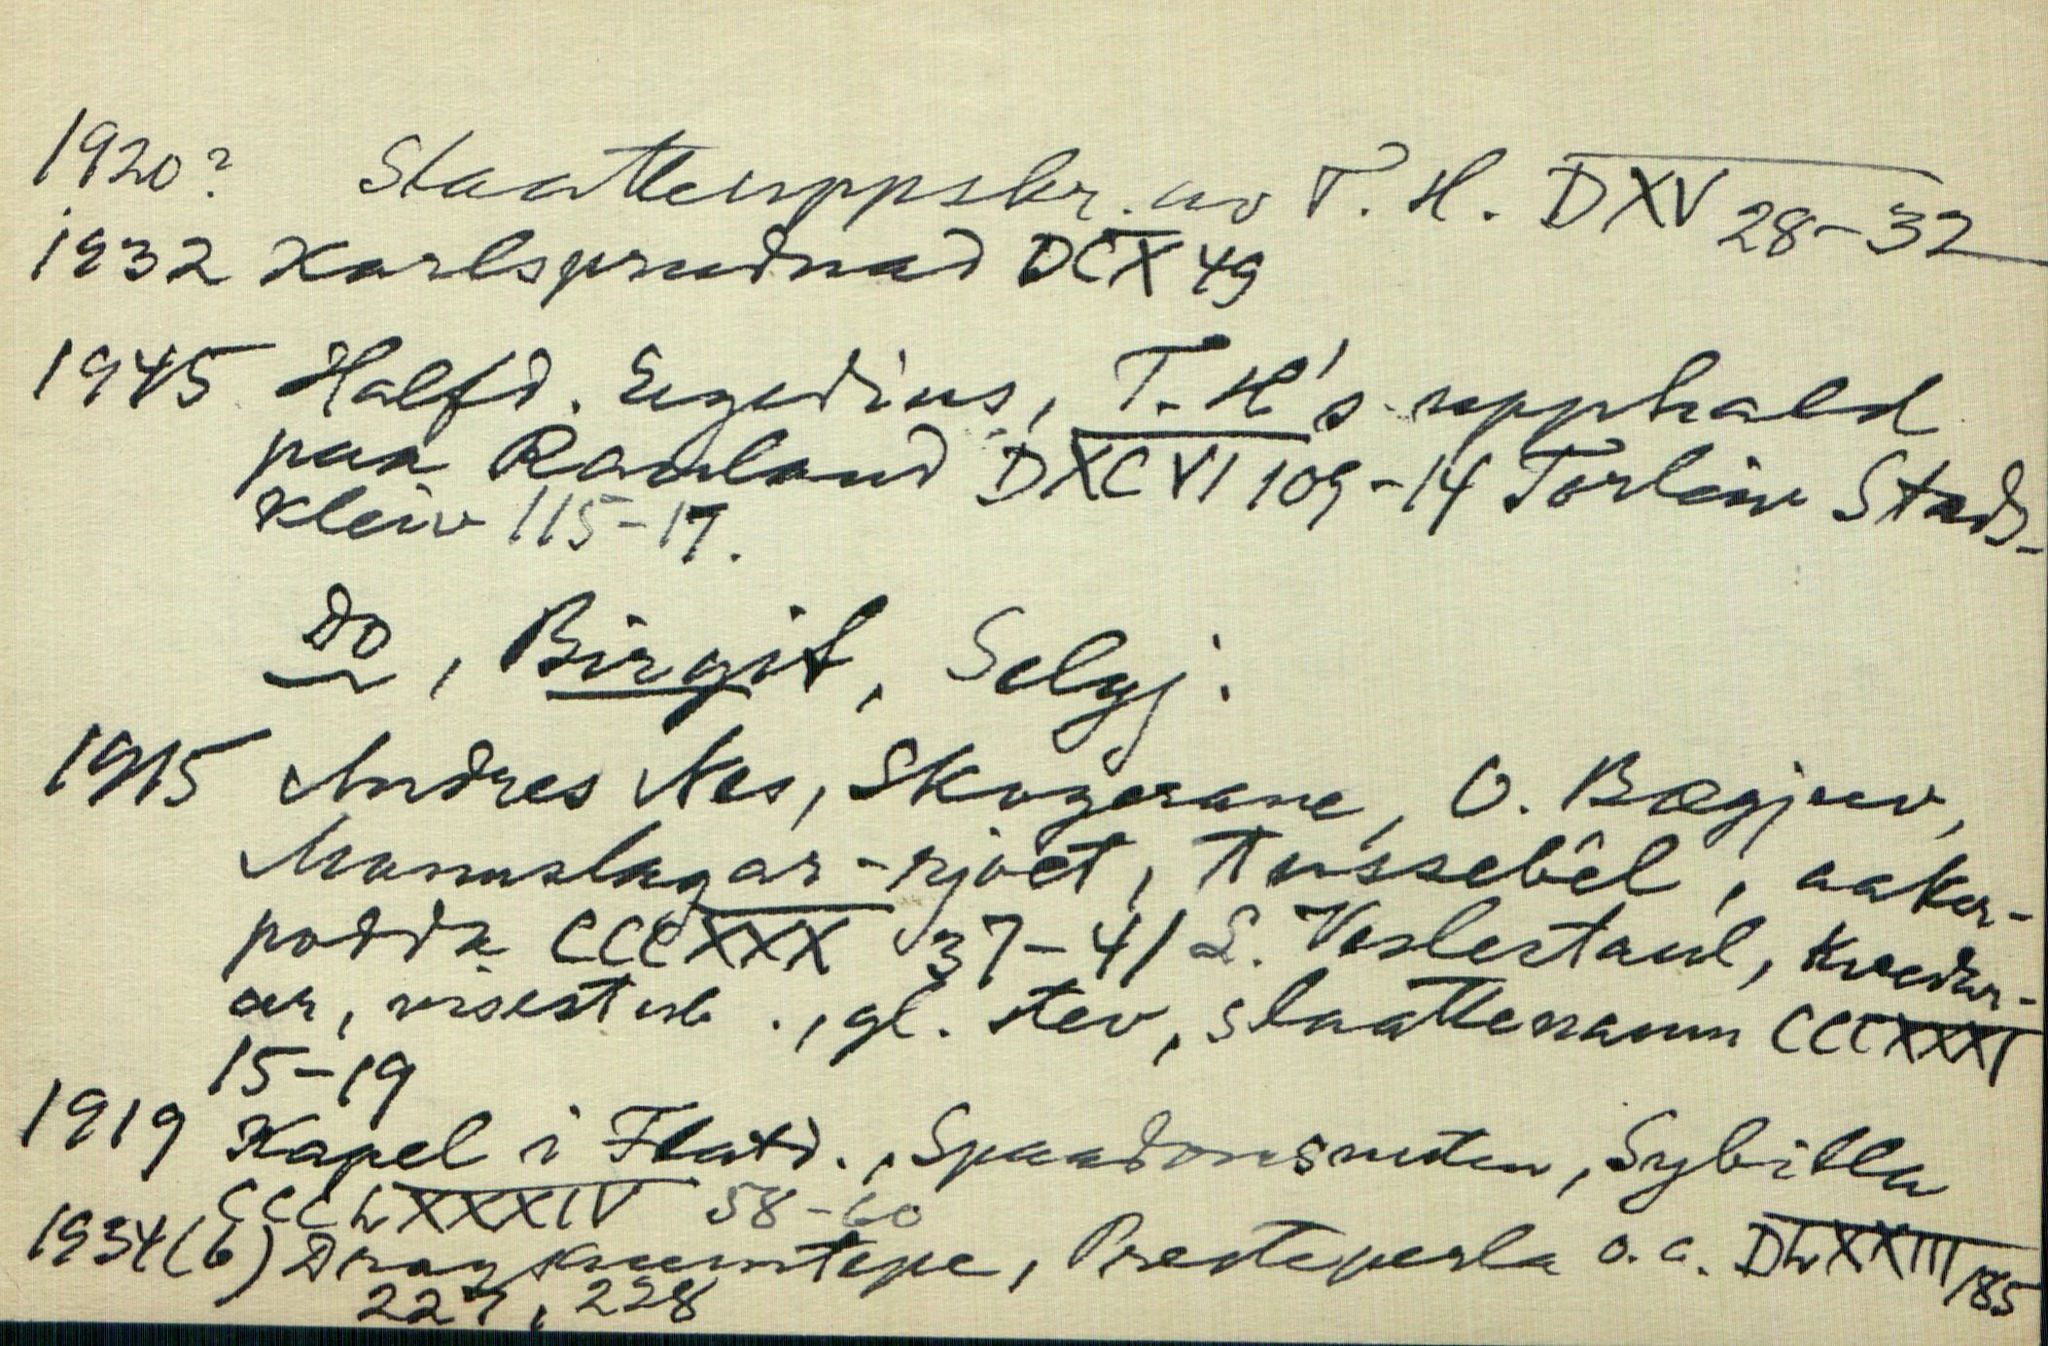 1920? Slaatteuppskr. av T. H. DXV 28-32
1932 Karlsprudnad DCX 49
1945 Halfd. Egedius, T. H's upphald
paa Rauland DXCVI 109-14 Torleiv Stads-
kleiv 115-17.
Do, Birgit, Selgj.
1915 Andres Nes, Skogerane, O. Bægjuv,
Mannslagar-rjoet, Tussebêl, aaker-
podda CCCXXX 37-41 S. Veslestaul, Kvedar-
ar, visestub., gl. stev, slaattenamn CCCXXXI
15-19
1919 Kapel i Flatd., Spaadomsnuten, Sybilla
CCCLXXXIV 58-60
1934 (b) Draugkumtepe, Presteperla o. a. DLXXIII 185
227, 228